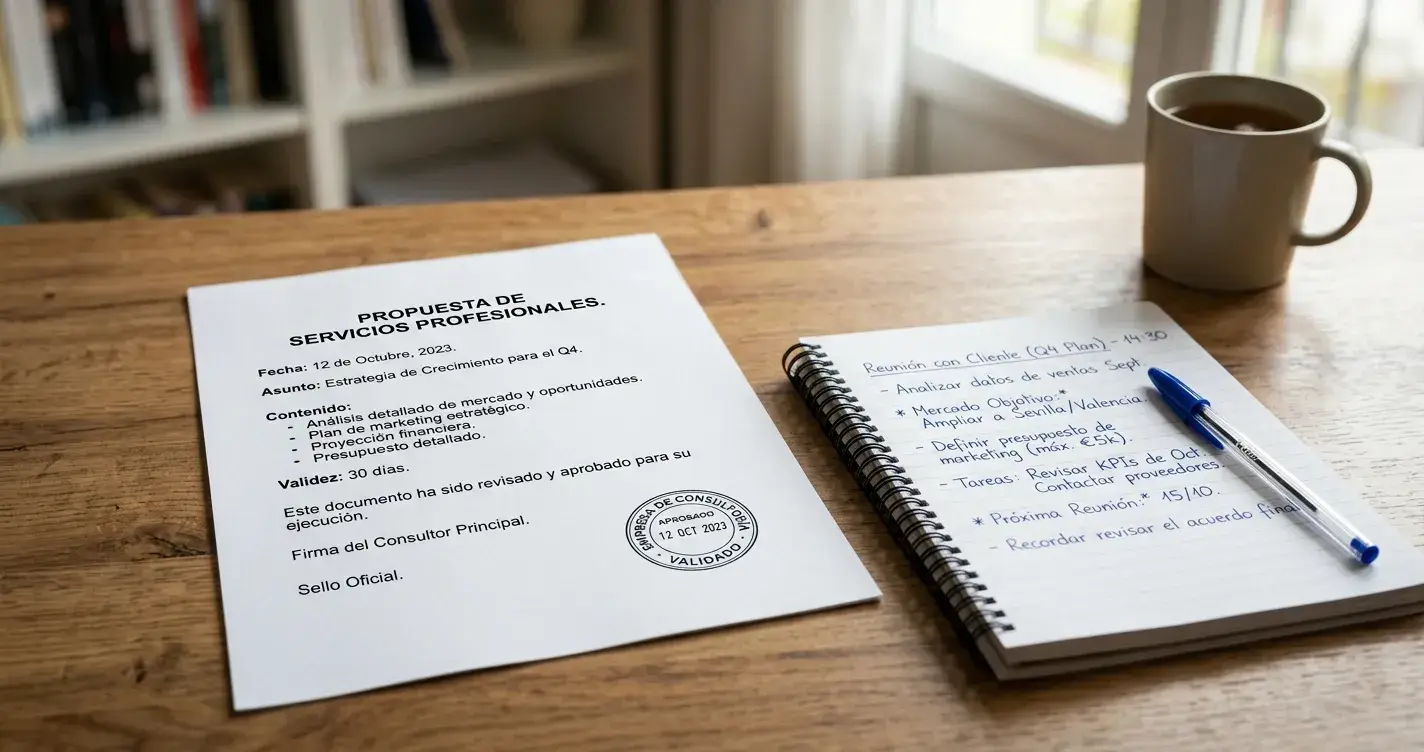 PROPUESTA DE
SERVICIOS PROFESIONALES.
Fecha: 12 de Octubre, 2023.
Asunto: Estrategia de Crecimiento para el Q4.
Contenido:
- Análisis detallado de mercado y oportunidades.
- Plan de marketing eetratégico.
- Proyección financiera.
- Presupuesto detallado.
Validez: 30 días.
Este documento ha sido revisado y aprobado para su
ejecución.
Firma del Consultor Principal.
Sello Oficial.
DE
APROBADO
12 OCT 2023
· VALIDADO ·
Reunión con Cliente (Q4 Plan) - 14:30
- Analizar datos de ventas Sept.
* Mercado Objetivo:*
Ampliar a Sevilla/Valencia.
- Definir presupuesto de
marketing (máx. €5k).
- Tareas: Revisar KPIs de Oct.
Contactar proveedores.
* Próxima Reunión:* 15/10.
- Recordar revisar el acuerdo fina